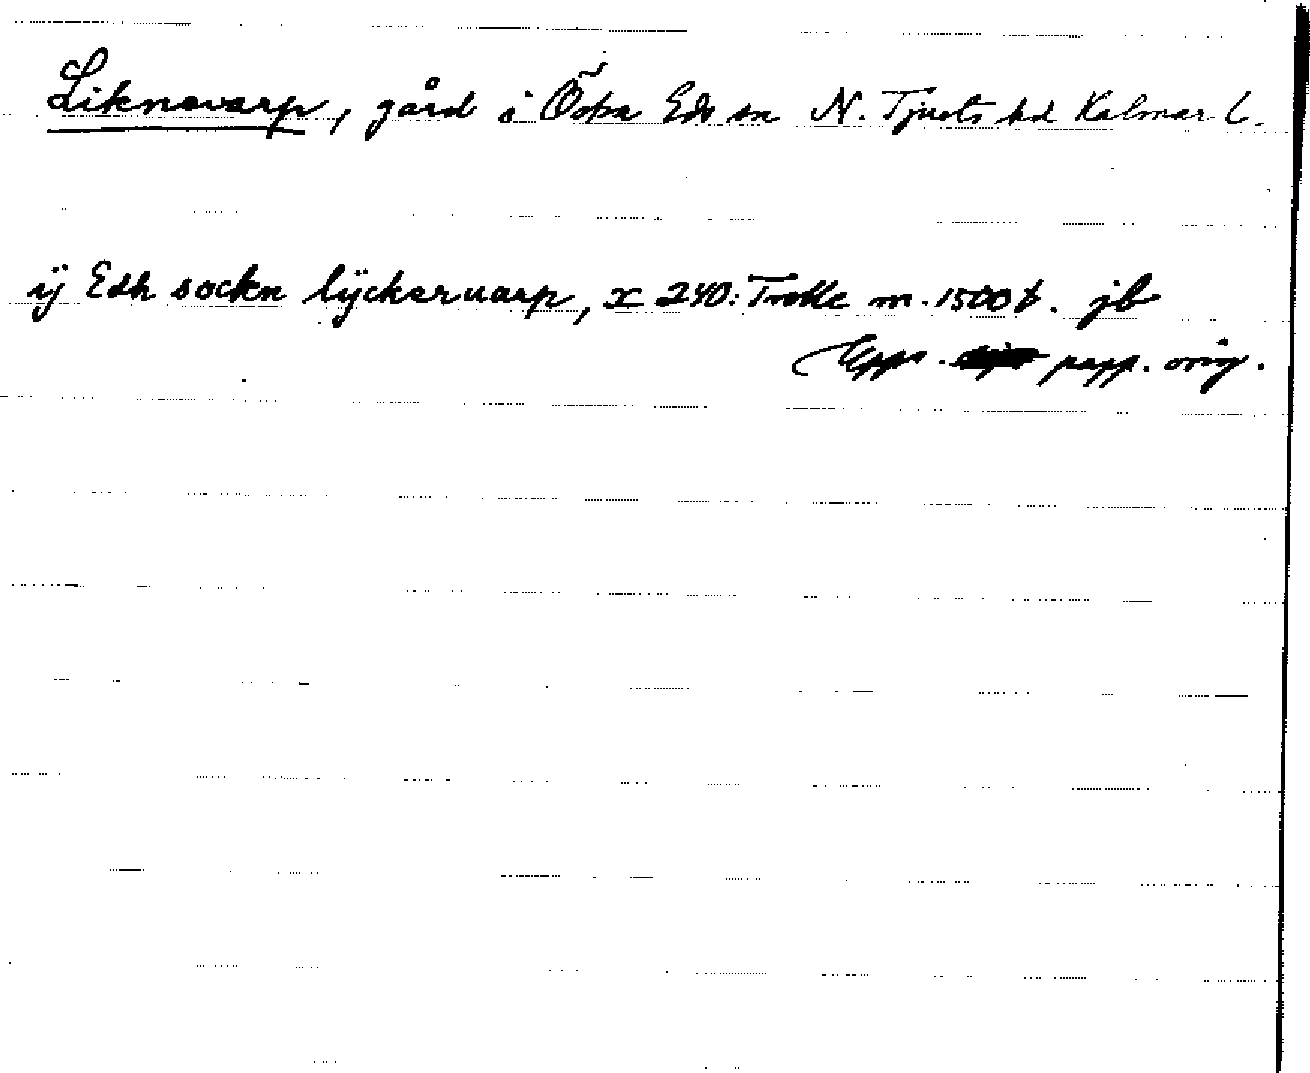 Liknevarp, gård i Östra Eds sn N. Tjusts hd Kalmar l.
ij Edh sockn lÿckeruarp, x 240: Trolle m. 1500 t. jb
Upps. papp. orig.